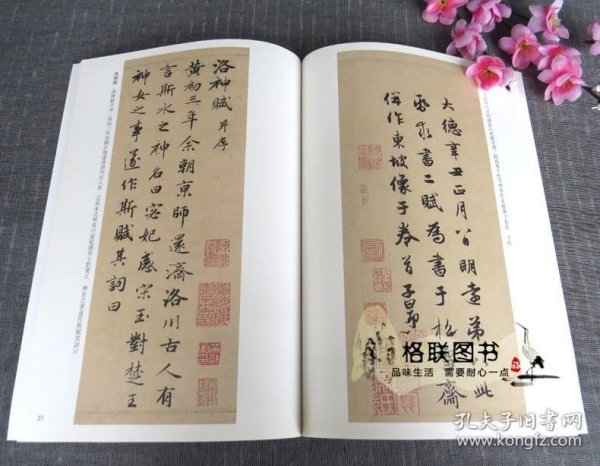 大德辛丑正月八日明遠弟以此
帋求書二賦為書于松雪齋
併作東坡像于卷首子昂
洛神賦 并序
黄初三年余朝京師還濟洛川古人有
言斯水之神名曰宓妃感宋玉對楚王
神女之事遂作斯賦其詞曰
25
格联图书
品味生活 需要耐心一点
孔夫子旧书网
www.kongfz.com